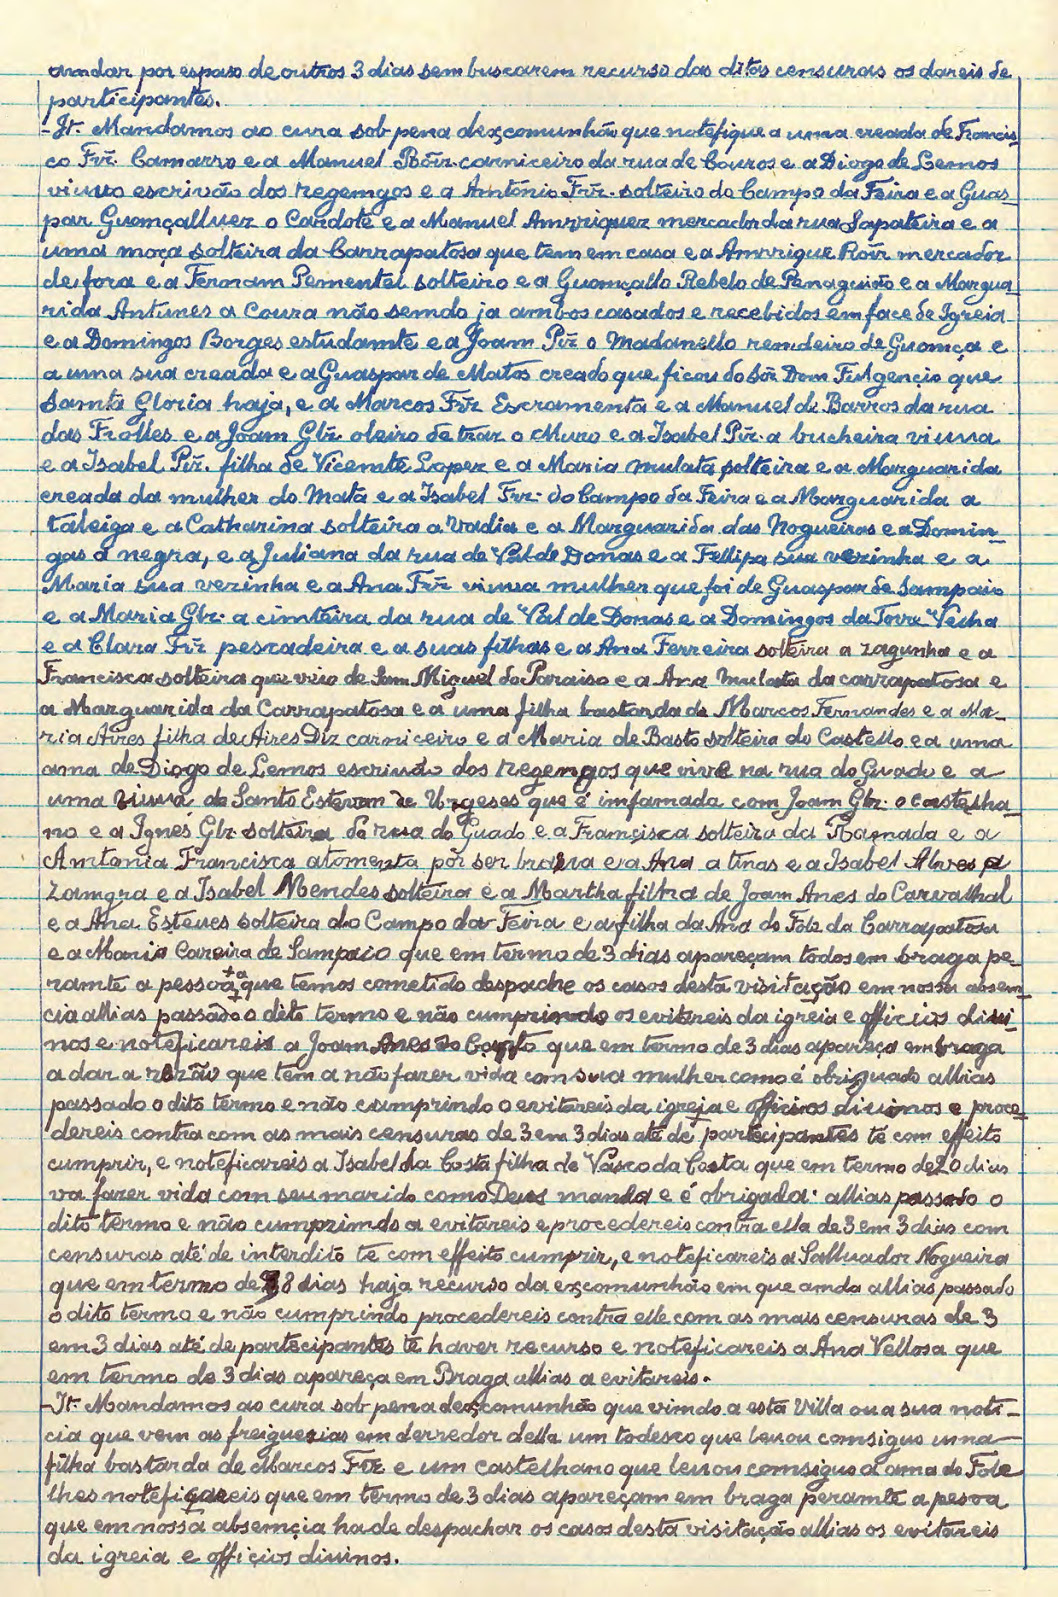 amdar por espaso de outros 3 dias sem buscarem recurso das ditas censuras os dareis de
participantes.
-It. Mandamos ao cura sob pena dexcomunhão que notefique a uma creada de Francis-
co Frz. Camarro e a Manuel Roiz. carniceiro da rua de Couros e a Diogo de Lemos
viuvo escrivão dos regemgos e a António Frz. solteiro do Campo da Feira e a Guas-
par Guomçalluez o Cardote e a Manuel Amrriquez mercador da rua Sapateira e a
uma moça solteira da Carrapatosa que tem em casa e a Amrrique Roiz mercador
de fora e a Fernam Pementel solteiro e a Guomçallo Rebelo de Penaguião e a Margua-
rida Antunes a Coura não semdo ja ambos casados e recebidos em face de Igreia
e a Domingos Borges estudamte e a Joam Piz o Madanello remdeiro de Guomça e
a uma sua creada e a Guaspar de Matos creado que ficou do sõr Dom Fulgencio que
Samta Gloria haja, e a Marcos Frz Escramenta e a Manuel de Barros da rua
das Frolles e a Joam Glz oleiro de traz o Muro e a Isabel Piz. a bucheira viuua
e a Isabel Piz. filha de Vicemte Lopez e a Maria mulata solteira e a Marguarida
creada da mulher do Mata e a Isabel Frz. do Campo da Feira e a Marguarida a
taleiga e a Catharina solteira a Vadia e a Marguarida das Nogueiras e a Domin-
gas a negra, e a Juliana da rua de Val de Donas e a Fellipa sua vezinha e a
Maria sua vezinha e a Ana Frz viuua mulher que foi de Guaspar de Sampaio
e a Maria Glz. a cimteira da rua de Val de Donas e a Domingos da Torre Velha
e a Clara Frz pescadeira e a suas filhas e a Ana Ferreira solteira a zagunha e a
Francisca solteira que veio de Sam Miguel do Paraiso e a Ana mulata da carrapatosa e
a Marguarida da Carrapatosa e a uma filha bastarda de Marcos Fernandes e a Ma-
ria Aires filha de Aires Diz carniceiro e a Maria de Basto solteira do Castello e a uma
ama de Diogo de Lemos escrivão dos regemgos que vive na rua do Guado e a
uma viuva de Santo Estevam de Urgeses que é imfamada com Joam Glz. o castelha
no e a Ignes Glz solteira da rua do Guado e a Framcisca solteira da Ramada e a
Amtonia Francisca atomenta por ser brava e a Ana a tinas e a Isabel Alves a
zamgra e a Isabel Mendes solteira e a Martha filha de Joam Anes do Carvalhal
e a Ana Esteves solteira do Campo da Feira e a filha da Ana do Fole da Carrapatosa
e a Maria Careira de Sampaio que em termo de 3 dias apareçam todos em braga pe-
ramte a pessoa que temos cometido despache os casos desta visitação em nossa absem-
cia allias passado o dito termo e não cumprindo os evitareis da igreia e officios divi-
nos e noteficareis a Joam Anes do Couto que em termo de 3 dias apareça em braga
a dar a rezão que tem a não fazer vida com sua mulher como é obriguado allias
passado o dito termo e não cumprindo o evitareis da igreja e officios divinos e proce-
dereis contra com as mais censuras de 3 em 3 dias até de partecipantes té com effeito
cumprir, e noteficareis a Isabel da Costa filha de Vasco da Costa que em termo de 20 dias
va fazer vida com seu marido como Deus manda e é obrigada. allias passado o
dito termo e não cumprimdo a evitareis e procedereis contra ella de 3 em 3 dias com
censuras até de interdito té com effeito cumprir, e noteficareis a Salluador Nogueira
que em termo de 8 dias haja recurso da excomunhão em que anda allias passado
o dito termo e não cumprindo procedereis contra elle com as mais censuras de 3
em 3 dias até de partecipantes té haver recurso e noteficareis a Ana Vellosa que
em termo de 3 dias apareça em Braga allias a evitareis.
-It. Mandamos ao cura sob pena dexcomunhão que vimdo a esta Villa ou a sua noti-
cia que vem as freiguesias em derredor della um todesco que levou comsiguo uma
filha bastarda de Marcos Frz e um castelhano que levou comsiguo a ama do Fole
lhes noteficareis que em termo de 3 dias apareçam em braga peramte a pesoa
que em nossa absemçia hade despachar os casos desta visitação allias os evitareis
da igreia e officios divinos.